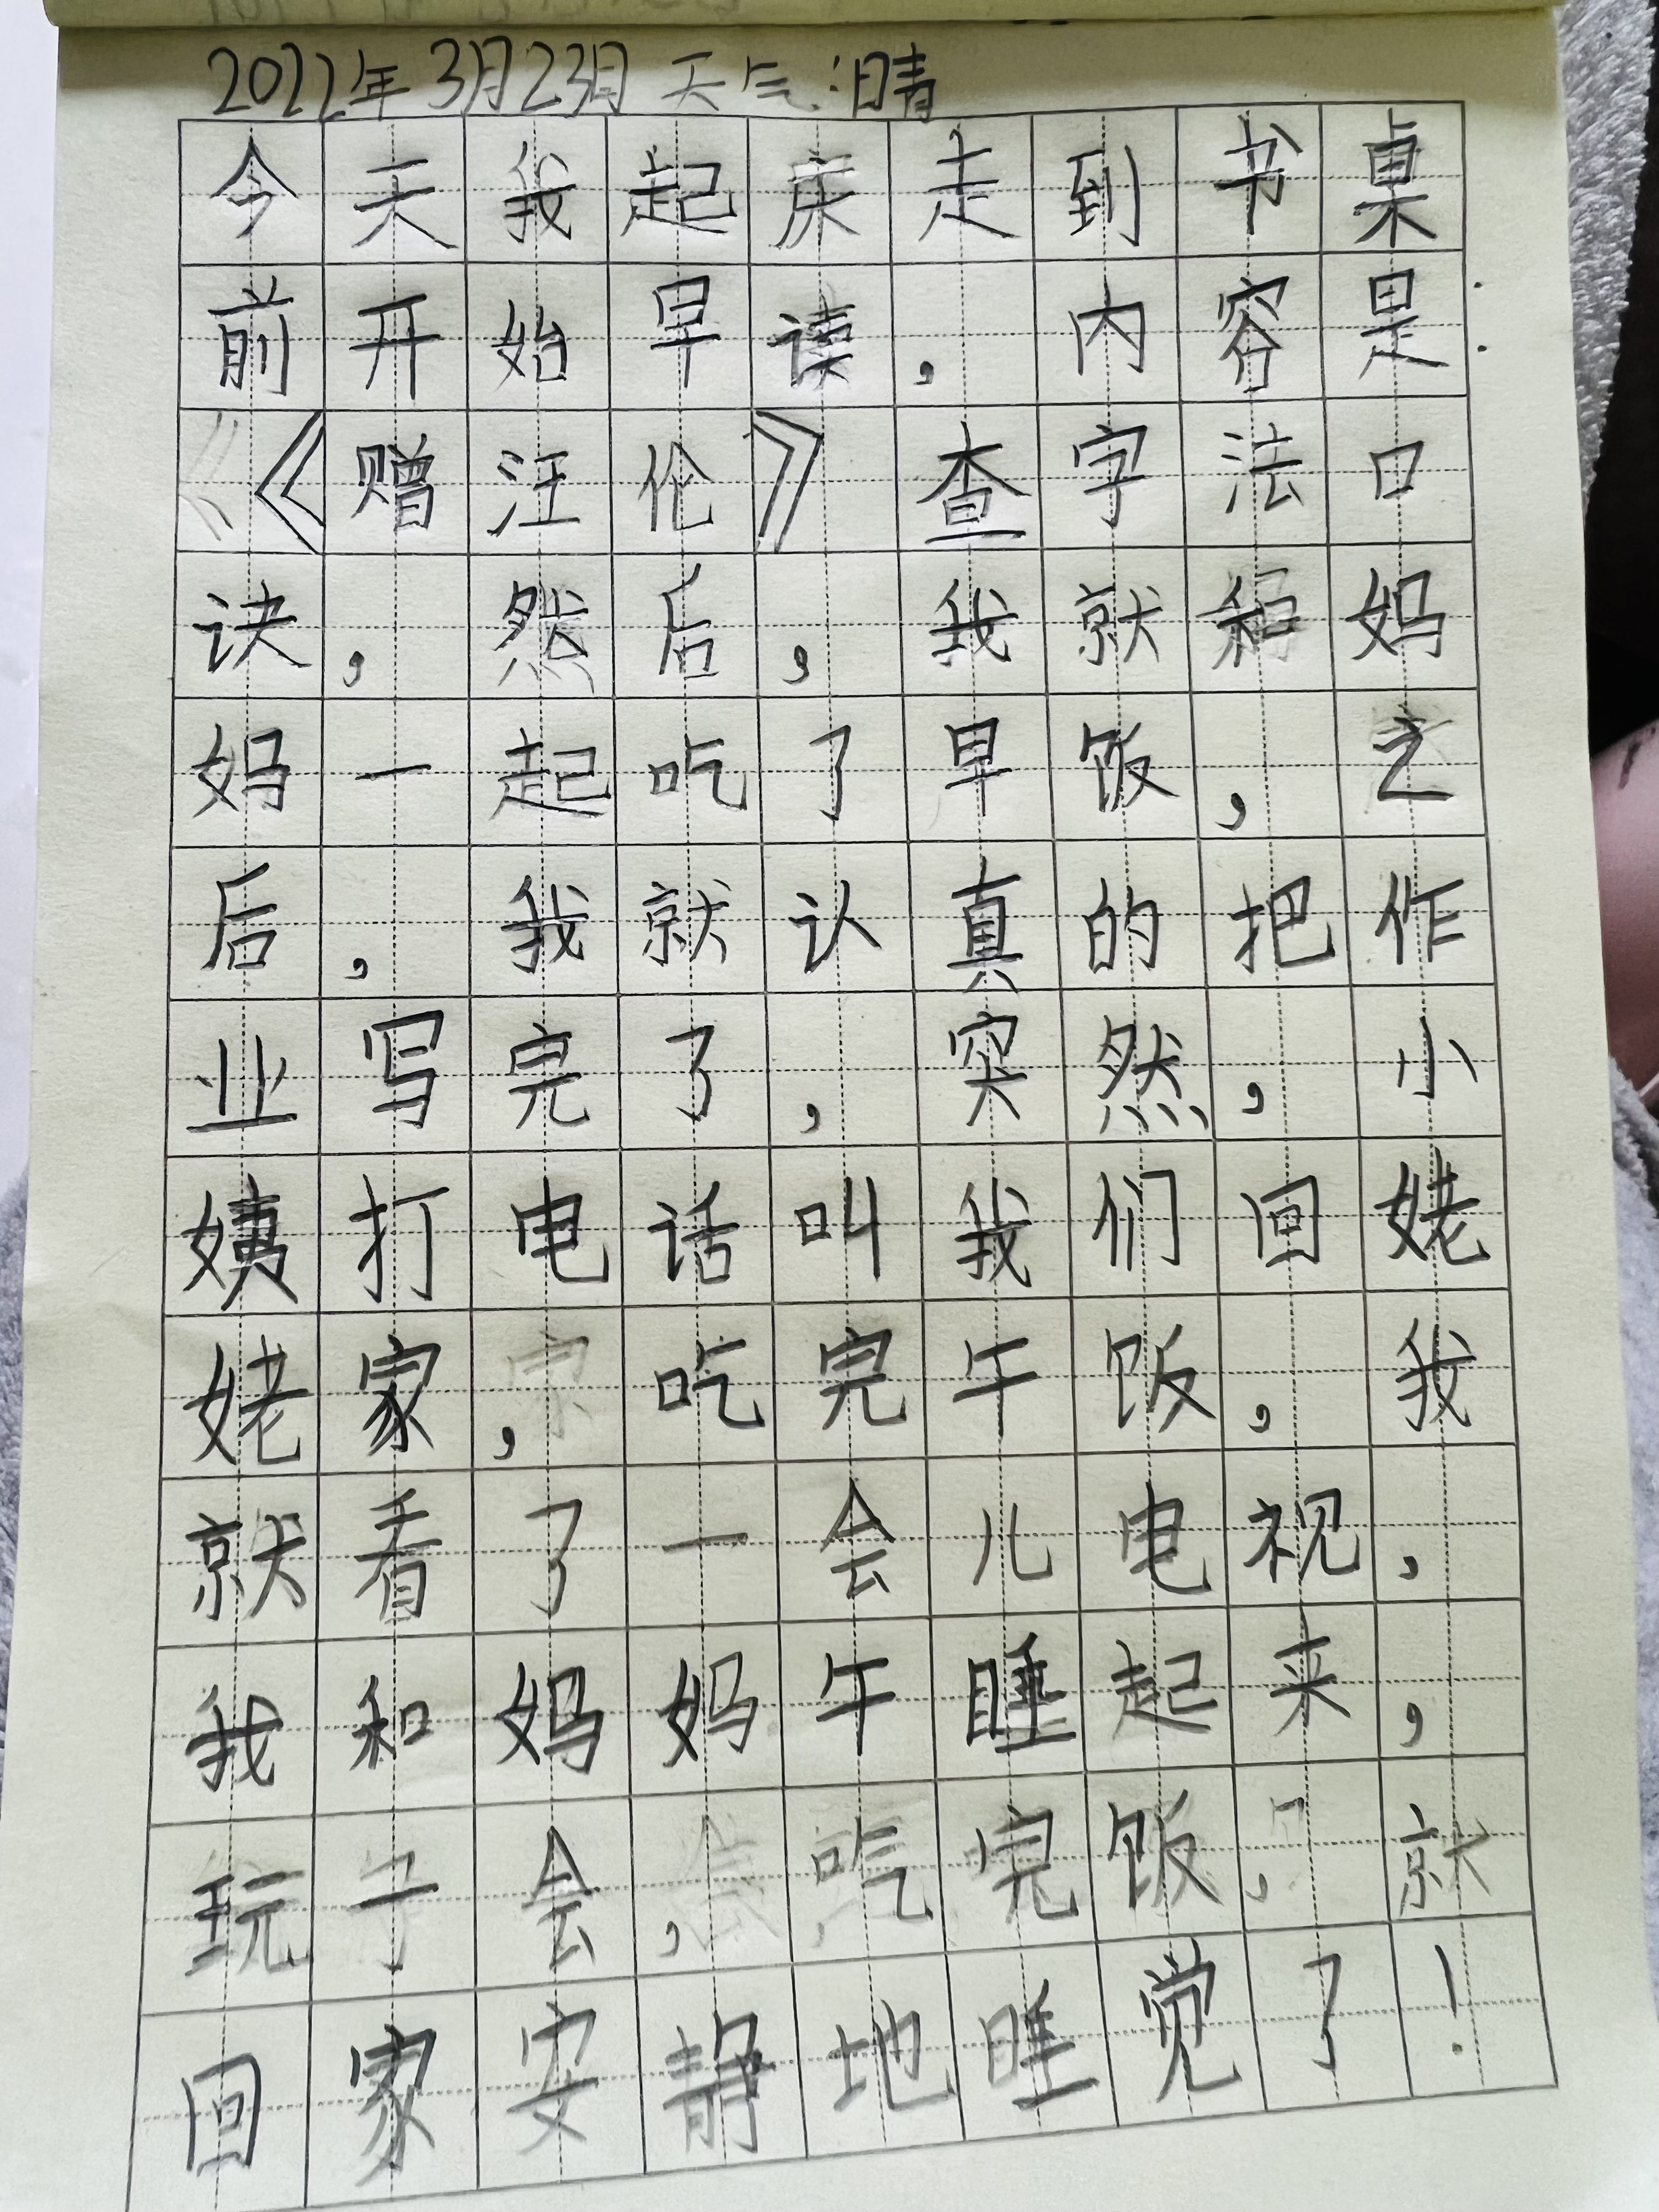 2022年3月23日 天气:晴
今天我起床走到书桌
前开始早读,内容是:
《赠汪伦》查字法口
诀,然后,我就和妈
妈一起吃了早饭,之
后,我就认真的把作
业写完了,突然,小
姨打电话叫我们回姥
姥家,吃完午饭,我
就看了一会儿电视,
我和妈妈午睡起来,
玩一会,吃完饭,就
回家安静地睡觉了!